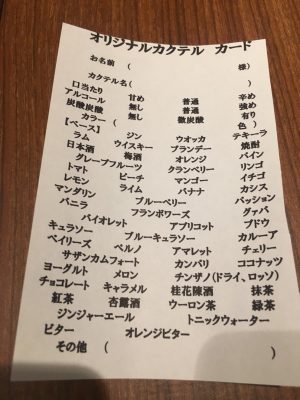 オリジナルカクテル カード
お名前 ( 様)
カクテル名( )
口当たり 甘め 普通 辛め
アルコール 無し 普通 強め
炭酸炭酸 無し 微炭酸 有り
カラー( 色)
【ベース】 ジン ウオッカ テキーラ
ラム ウイスキー ブランデー 焼酎
日本酒 梅酒 オレンジ パイン
グレープフルーツ クランベリー リンゴ
トマト ピーチ マンゴー イチゴ
レモン ライム バナナ カシス
マンダリン ブルーベリー パッション
バニラ フランボワーズ グァバ
バイオレット アプリコット ブドウ
キュラソー ブルーキュラソー カルーア
ベイリーズ ペルノ アマレット チェリー
サザンカムフォート カンパリ ココナッツ
ヨーグルト メロン チンザノ(ドライ、ロッソ)
チョコレート キャラメル 桂花陳酒 抹茶
紅茶 杏露酒 ウーロン茶 緑茶
ジンジャーエール トニックウォーター
ビター オレンジビター
その他 ( )